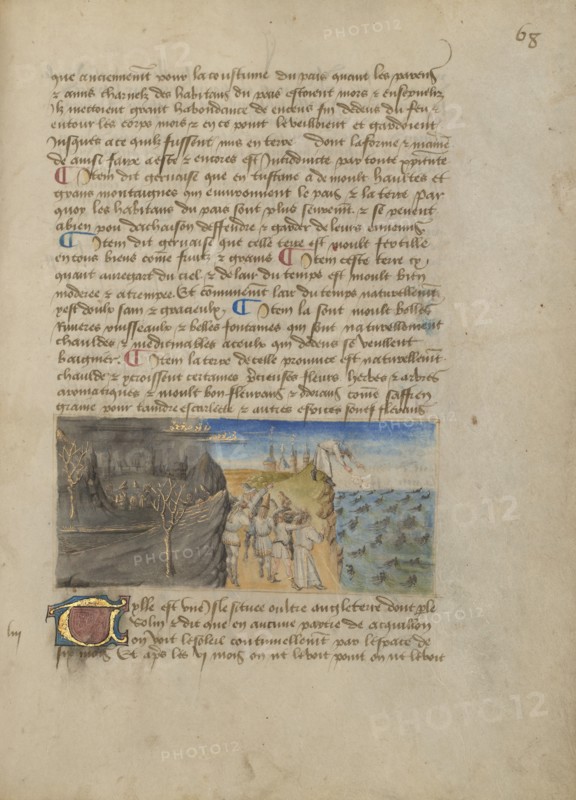 68
que anciennemt pour la coustume du pais quant les parens
& amis charnelz des habitans du pais estoient mors & enseueliz
Ilz mectoient grant habondance de encens fin dedens du feu &
entour les corps mors & en ce point le veilloient et gardoient
Jusques a ce quilz fussent mis en terre dont la forme &
de ainsi faire a este & encores est par toute
¶ Item dit geruaise que en tustane a de moult haultes et
grans montaignes qui enuironnent le pais & la terre Par
quoy les habitans du pais sont plus & se peuent
a bien pou dachoison deffendre & garder de leurs ennemis
¶ Item dit geruaise que celle terre est moult fertille
en tous biens come fruiz & grains ¶ Item ceste terre cy
quant au regart du ciel & de lair du temps est moult bien
moderee & atrempee. Et communemt lair du temps naturellemt
y est doulx sain & gracieulx. ¶ Item la sont moult belles
Riuieres ruisseaulx & belles fontaines qui sont naturellement
chauldes & medicinables a ceulx qui dedens se veullent
baigner. ¶ Item la terre de celle prouince est naturellemt
chaulde & y croissent certaines fleurs herbes & arbres
aromatiques & moult bon fleurans & dorans come saffren
graine pour taindre escarlecte & autres espices souef flerans
Tylle est vne Isle situee oultre angleterre dont ple
Solin & dit que en aucune partie de acquillon
on voit le soleil continuellement par lespace de
six mois Et apres les vj mois on ne le voit point on ne le voit
PHOTO12